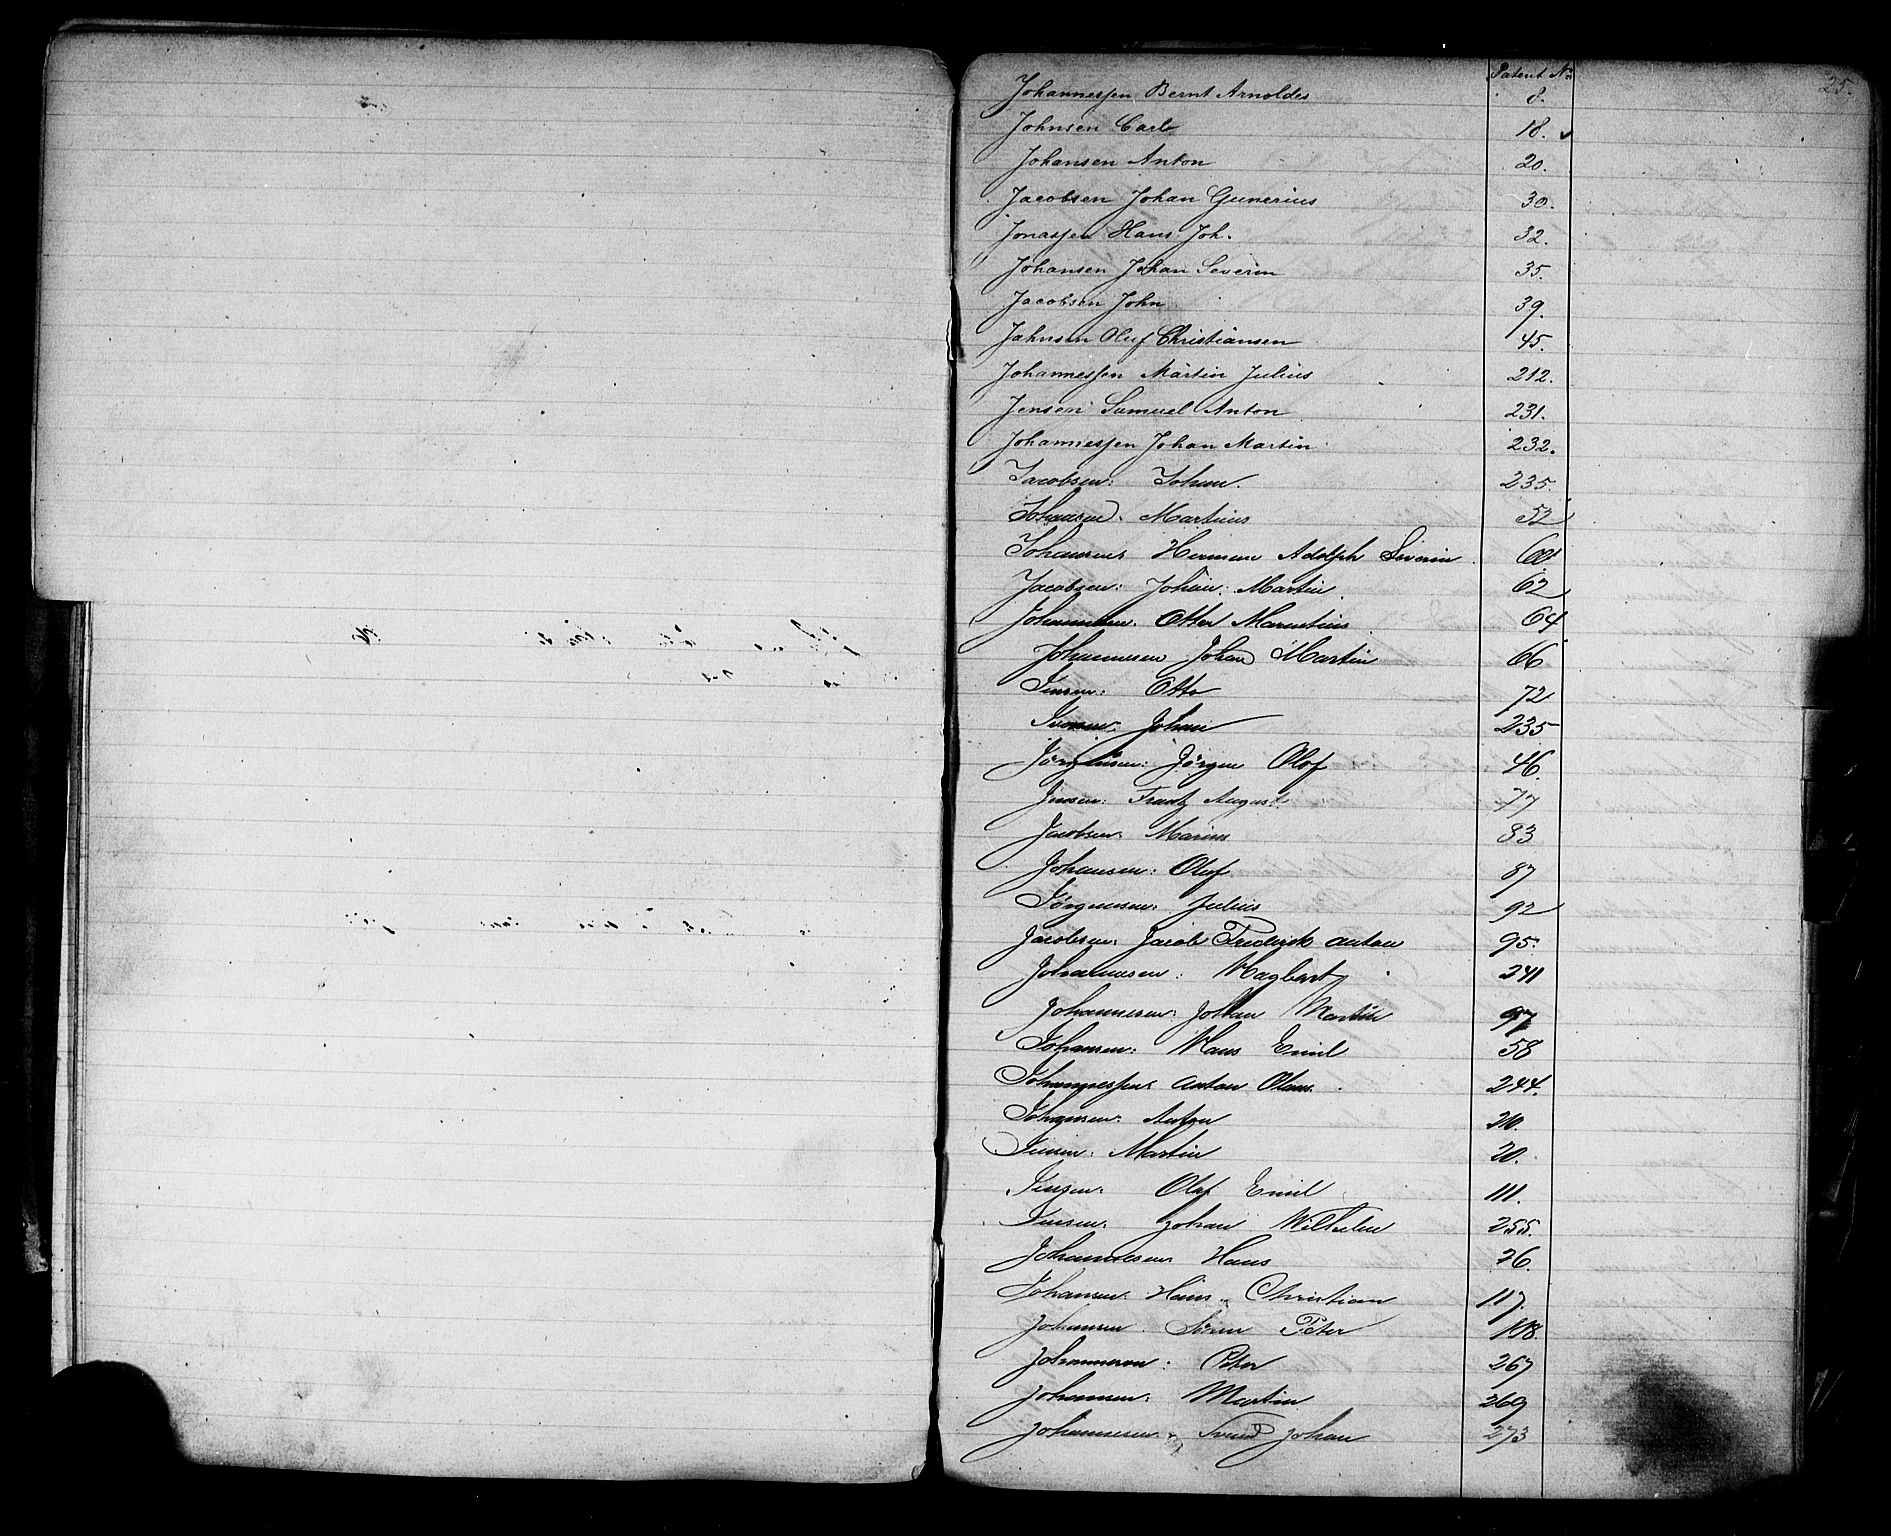 Patent No 25.
Johannessen Bernt Arnoldes 8.
Johnsen Carl 18. ✓
Johansen Anton 20.
Jacobsen Johan Gunerius 30.
Jonassen Hans Joh. 32.
Johansen Johan Severin 35.
Jacobsen John 39.
Jahnsen Oluf Christiansen 45.
Johannessen Martin Julius 212.
Jensen Samuel Anton 231.
Johannessen Johan Martin 232.
Jacobsen: Johan. 235.
Johansen. Martinus 52
Johansen, Herman Adolph Severin 60
Jacobsen: Johan: Martin 62
Johannesen. Otter Marentius 64
Johannesen Johan Martin 66
Jensen: Otto 72
Johan 235
Jörgensen: Jörgen Olof 46.
Jensen: Frantz August 77
Jacobsen: Marius 83
Johansen: Oluf 87
Jörgensen: Julius 92
Jacobsen: Jacob Frederick Anton 95.
Johannesen: Magbert 241
Johannesen: Johan Martin 97
Johansen: Hans Emil 58
Johannessen: Anton Olaus. 244.
Johansen: Anton 210.
Jensen: Martin 20.
Jensen: Olaf Emil 111.
Jensen: Johan Wilhelm 255.
Johannesen Hans 76.
Johansen: Hans Christian 117.
Johansen. Sören Peter 118.
Johannesen: Peter 267
Johansen: Martin 269
Johannesen. Svend Johan 273